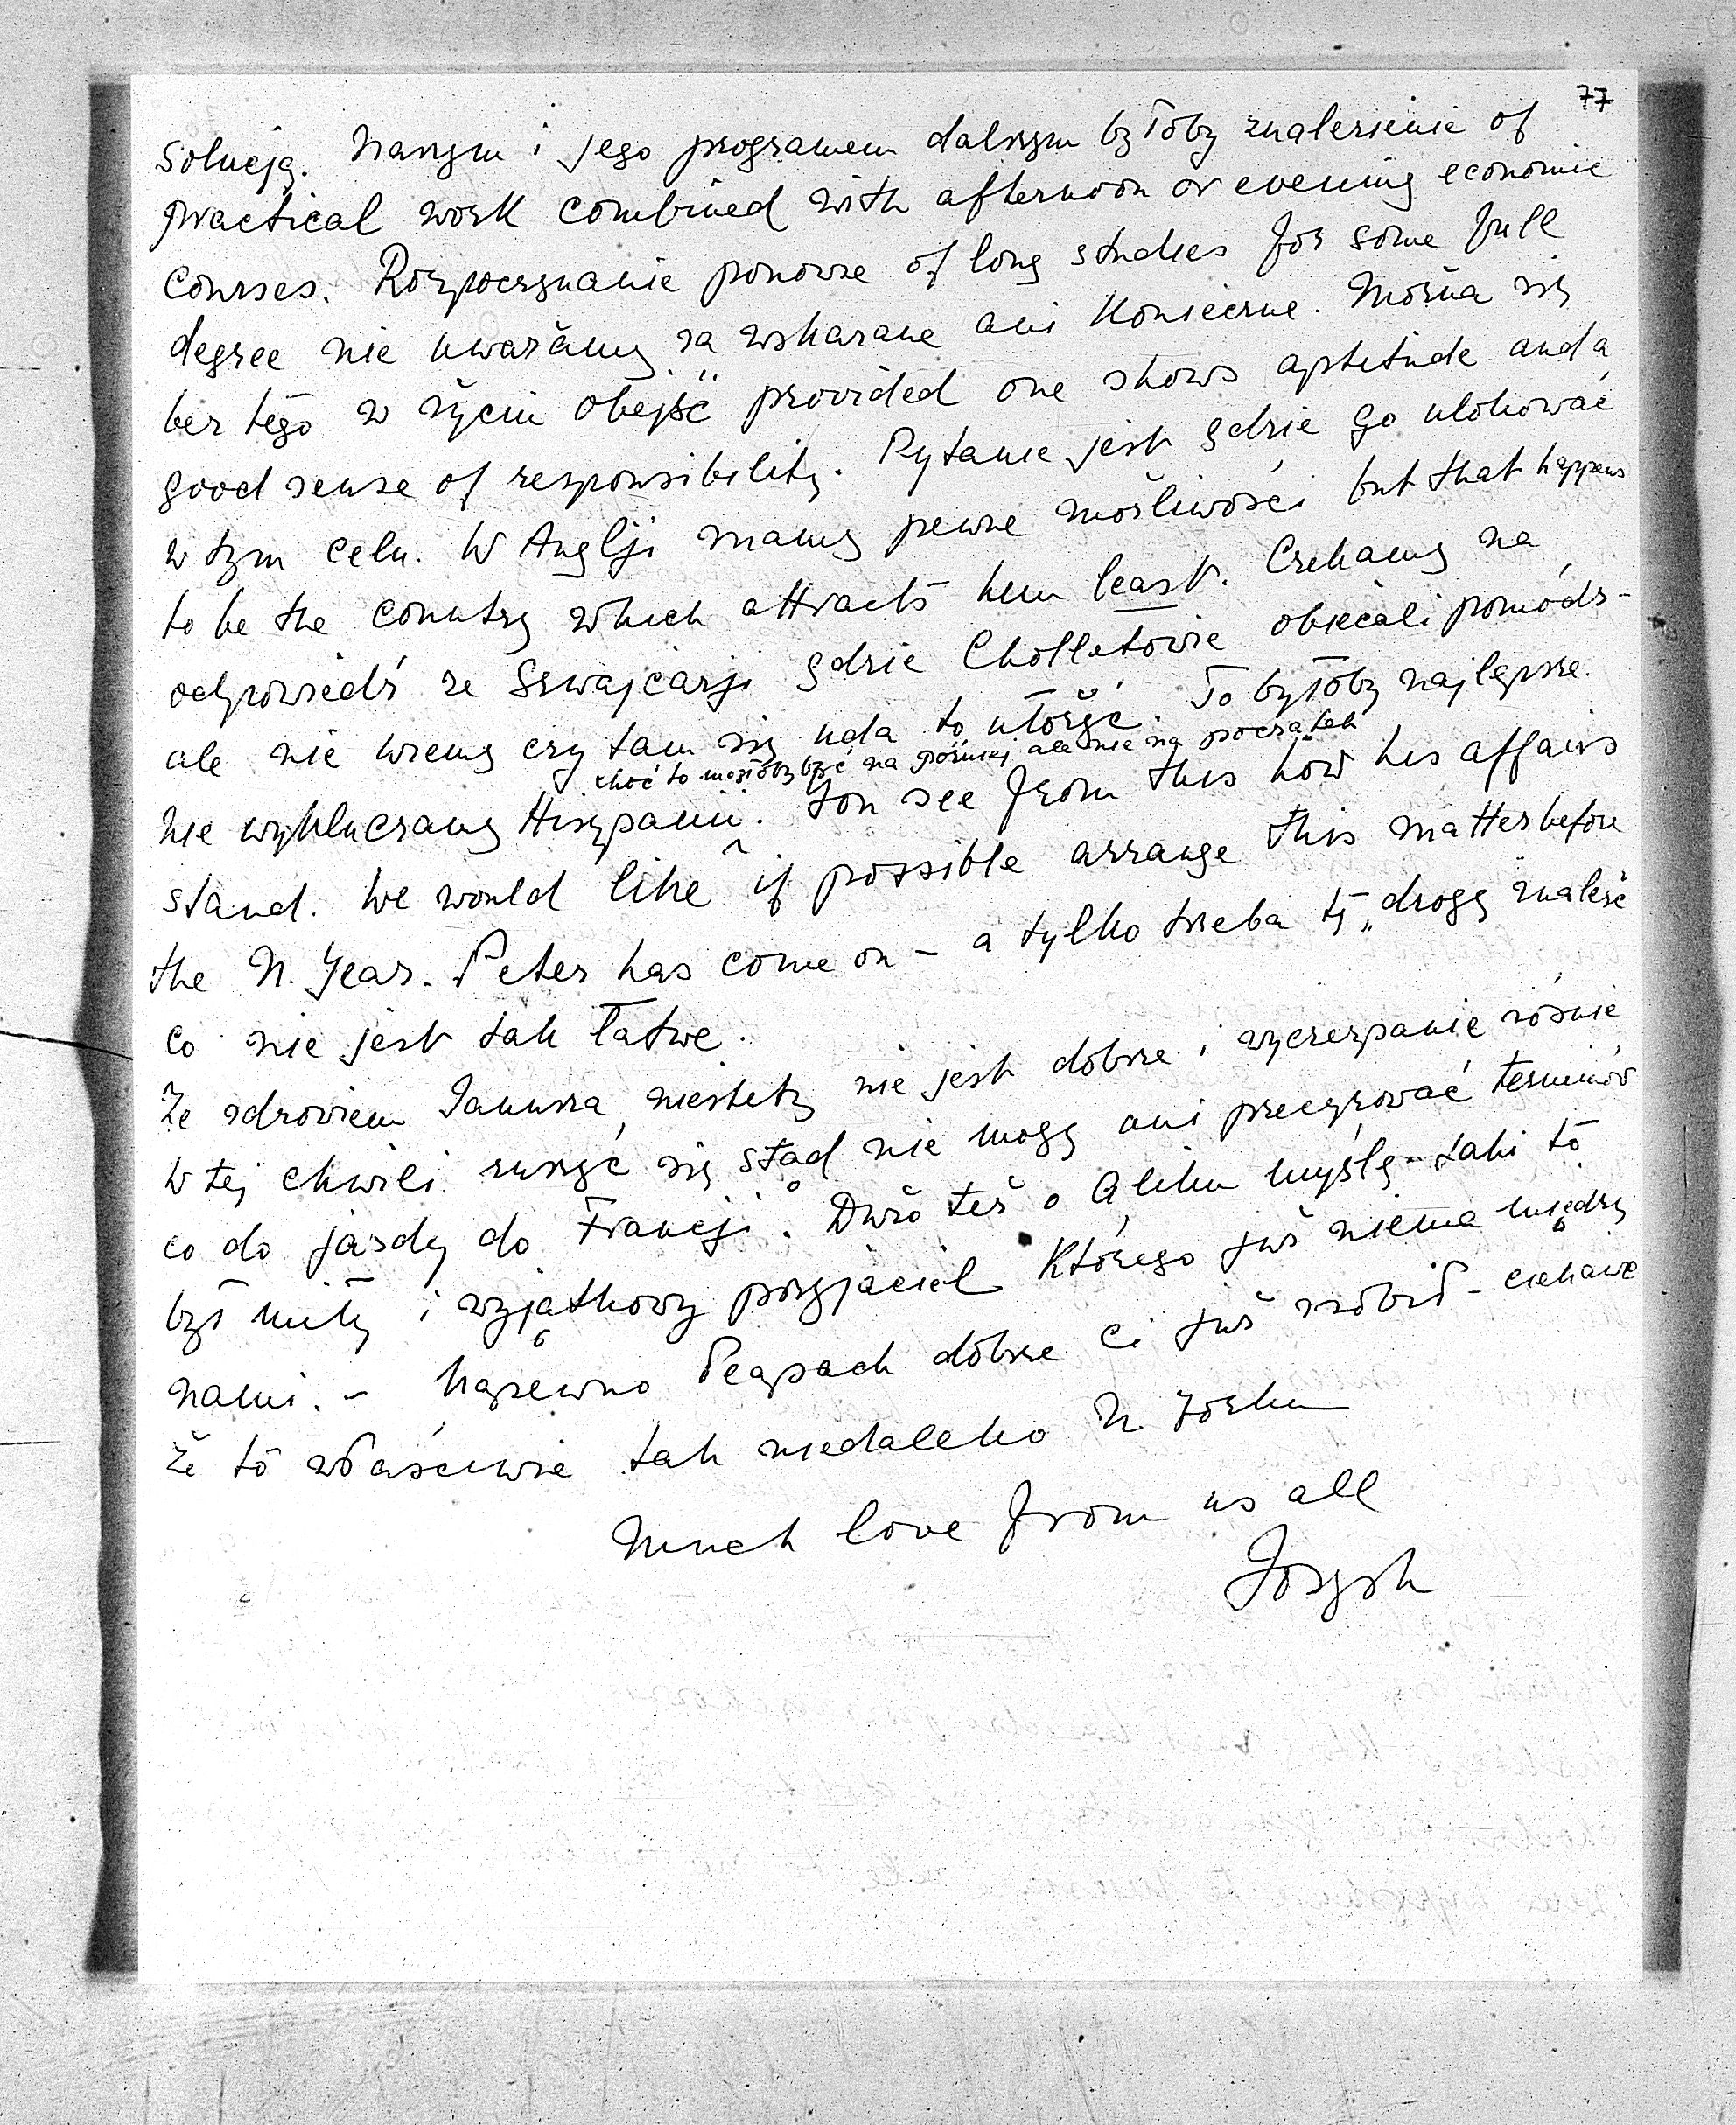 77
solucją. Naszym i jego programem dalszym byłoby znalezienie of
practical work combined with afternoon or evening economic
courses. Rozpoczynanie ponowne of long studies for some full
degree nie uważamy za wskazane ani konieczne. Można się
bez tego w życiu obejść provided one shows aptitude and a
good sense of responsibility. Pytanie jest gdzie go ulokować
w tym celu. W Anglji mamy pewne możliwości but that happens
to be the country which attracts him least. Czekamy na
odpowiedź ze Szwajcarji gdzie Cholletowie obiecali pomódz -
ale nie wiemy czy tam się uda to ułożyć. To byłoby najlepsze.
choć to mogłoby być na później ale nie na początek
Nie wykluczamy Hiszpanii. You see from this how his affairs
stand. We would like if possible arrange this matter before
the N. Year. Peter has come on - a tylko trzeba tę drogę znaleść
co nie jest tak łatwe.
Ze zdrowiem Janusza niestety nie jest dobrze i wyczerpanie rośnie
W tej chwili ruszyć się stąd nie mogę ani precyzować terminów
co do jazdy do Francji. Dużo też o Aliku myślę - taki to
był miły i wyjątkowy przyjaciel którego już niema między
nami. - Napewno Pespach dobrze ci już zrobił - ciekawe
że to właściwie tak niedaleko N Yorku
Much love from us all
Joseph